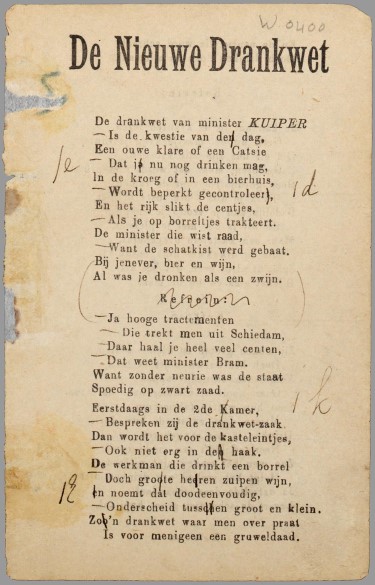 W 0400
De Nieuwe Drankwet
De drankwet van minister KUIPER
— Is de kwestie van den dag,
Een ouwe klare of een Catsie
— Dat je nu nog drinken mag,
In de kroeg of in een bierhuis,
— Wordt beperkt gecontroleerd,
En het rijk slikt de centjes,
— Als je op borreltjes trakteert.
De minister die wist raad,
— Want de schatkist werd gebaat.
Bij jenever, bier en wijn,
Al was je dronken als een zwijn.
Refrein:
— Ja hooge tractementen
— Die trekt men uit Schiedam,
— Daar haal je heel veel centen,
— Dat weet minister Bram.
Want zonder neurie was de staat
Spoedig op zwart zaad.
Eerstdaags in de 2de Kamer,
— Bespreken zij de drankwet-zaak
Dan wordt het voor de kasteleintjes,
— Ook niet erg in den haak.
De werkman die drinkt een borrel
— Doch groote heeren zuipen wijn,
En noemt dat doodeenvoudig,
— Onderscheid tusschen groot en klein.
Zoo'n drankwet waar men over praat
Is voor menigeen een gruweldaad.